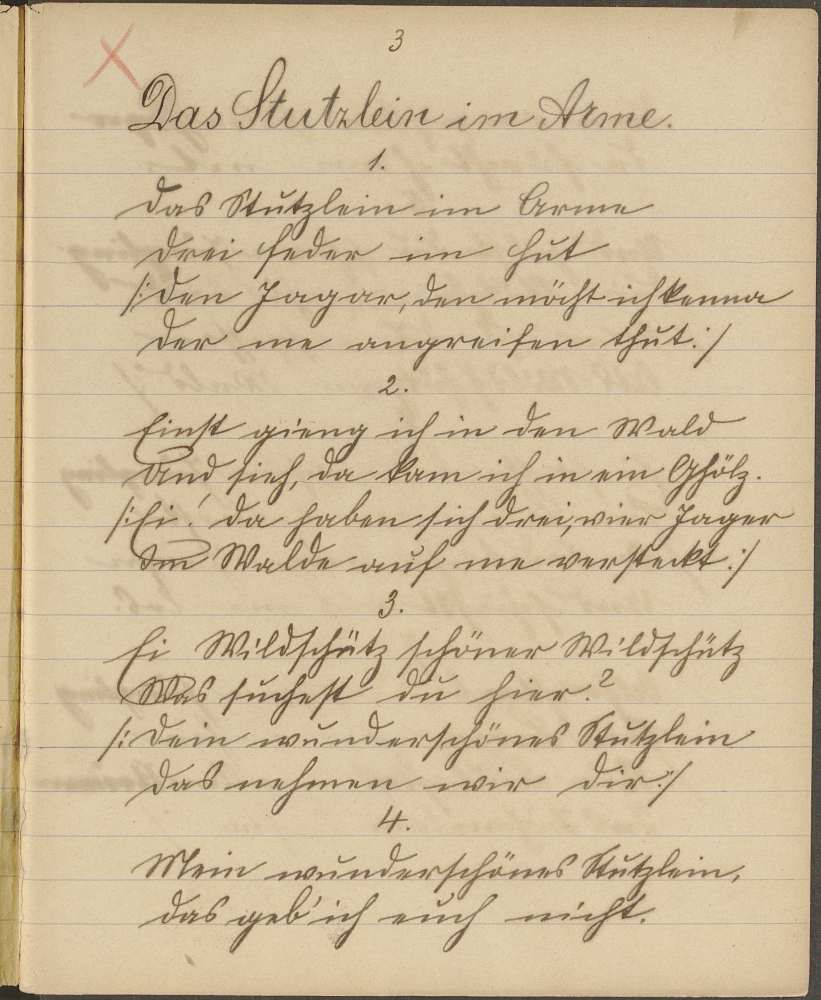 3
Das Stutzlein im Arme.
1.
Das Stutzlein im Arme
drei Feder im Hut
/: den Jagar, den möcht ich kenna
der me angreifen thut. :/
2.
Einst gieng ich in den Wald
Und sieh, da kam ich in ein Ghölz.
/: Ei! da haben sich drei, vier Jager
Im Walde auf me versteckt. :/
3.
Ei Wildschütz schöner Wildschütz
Was suchest du hier?
/: Dein wunderschönes Stutzlein
das nehmen wir dir. :/
4.
Mein wunderschönes Stutzlein,
das geb' ich euch nicht.